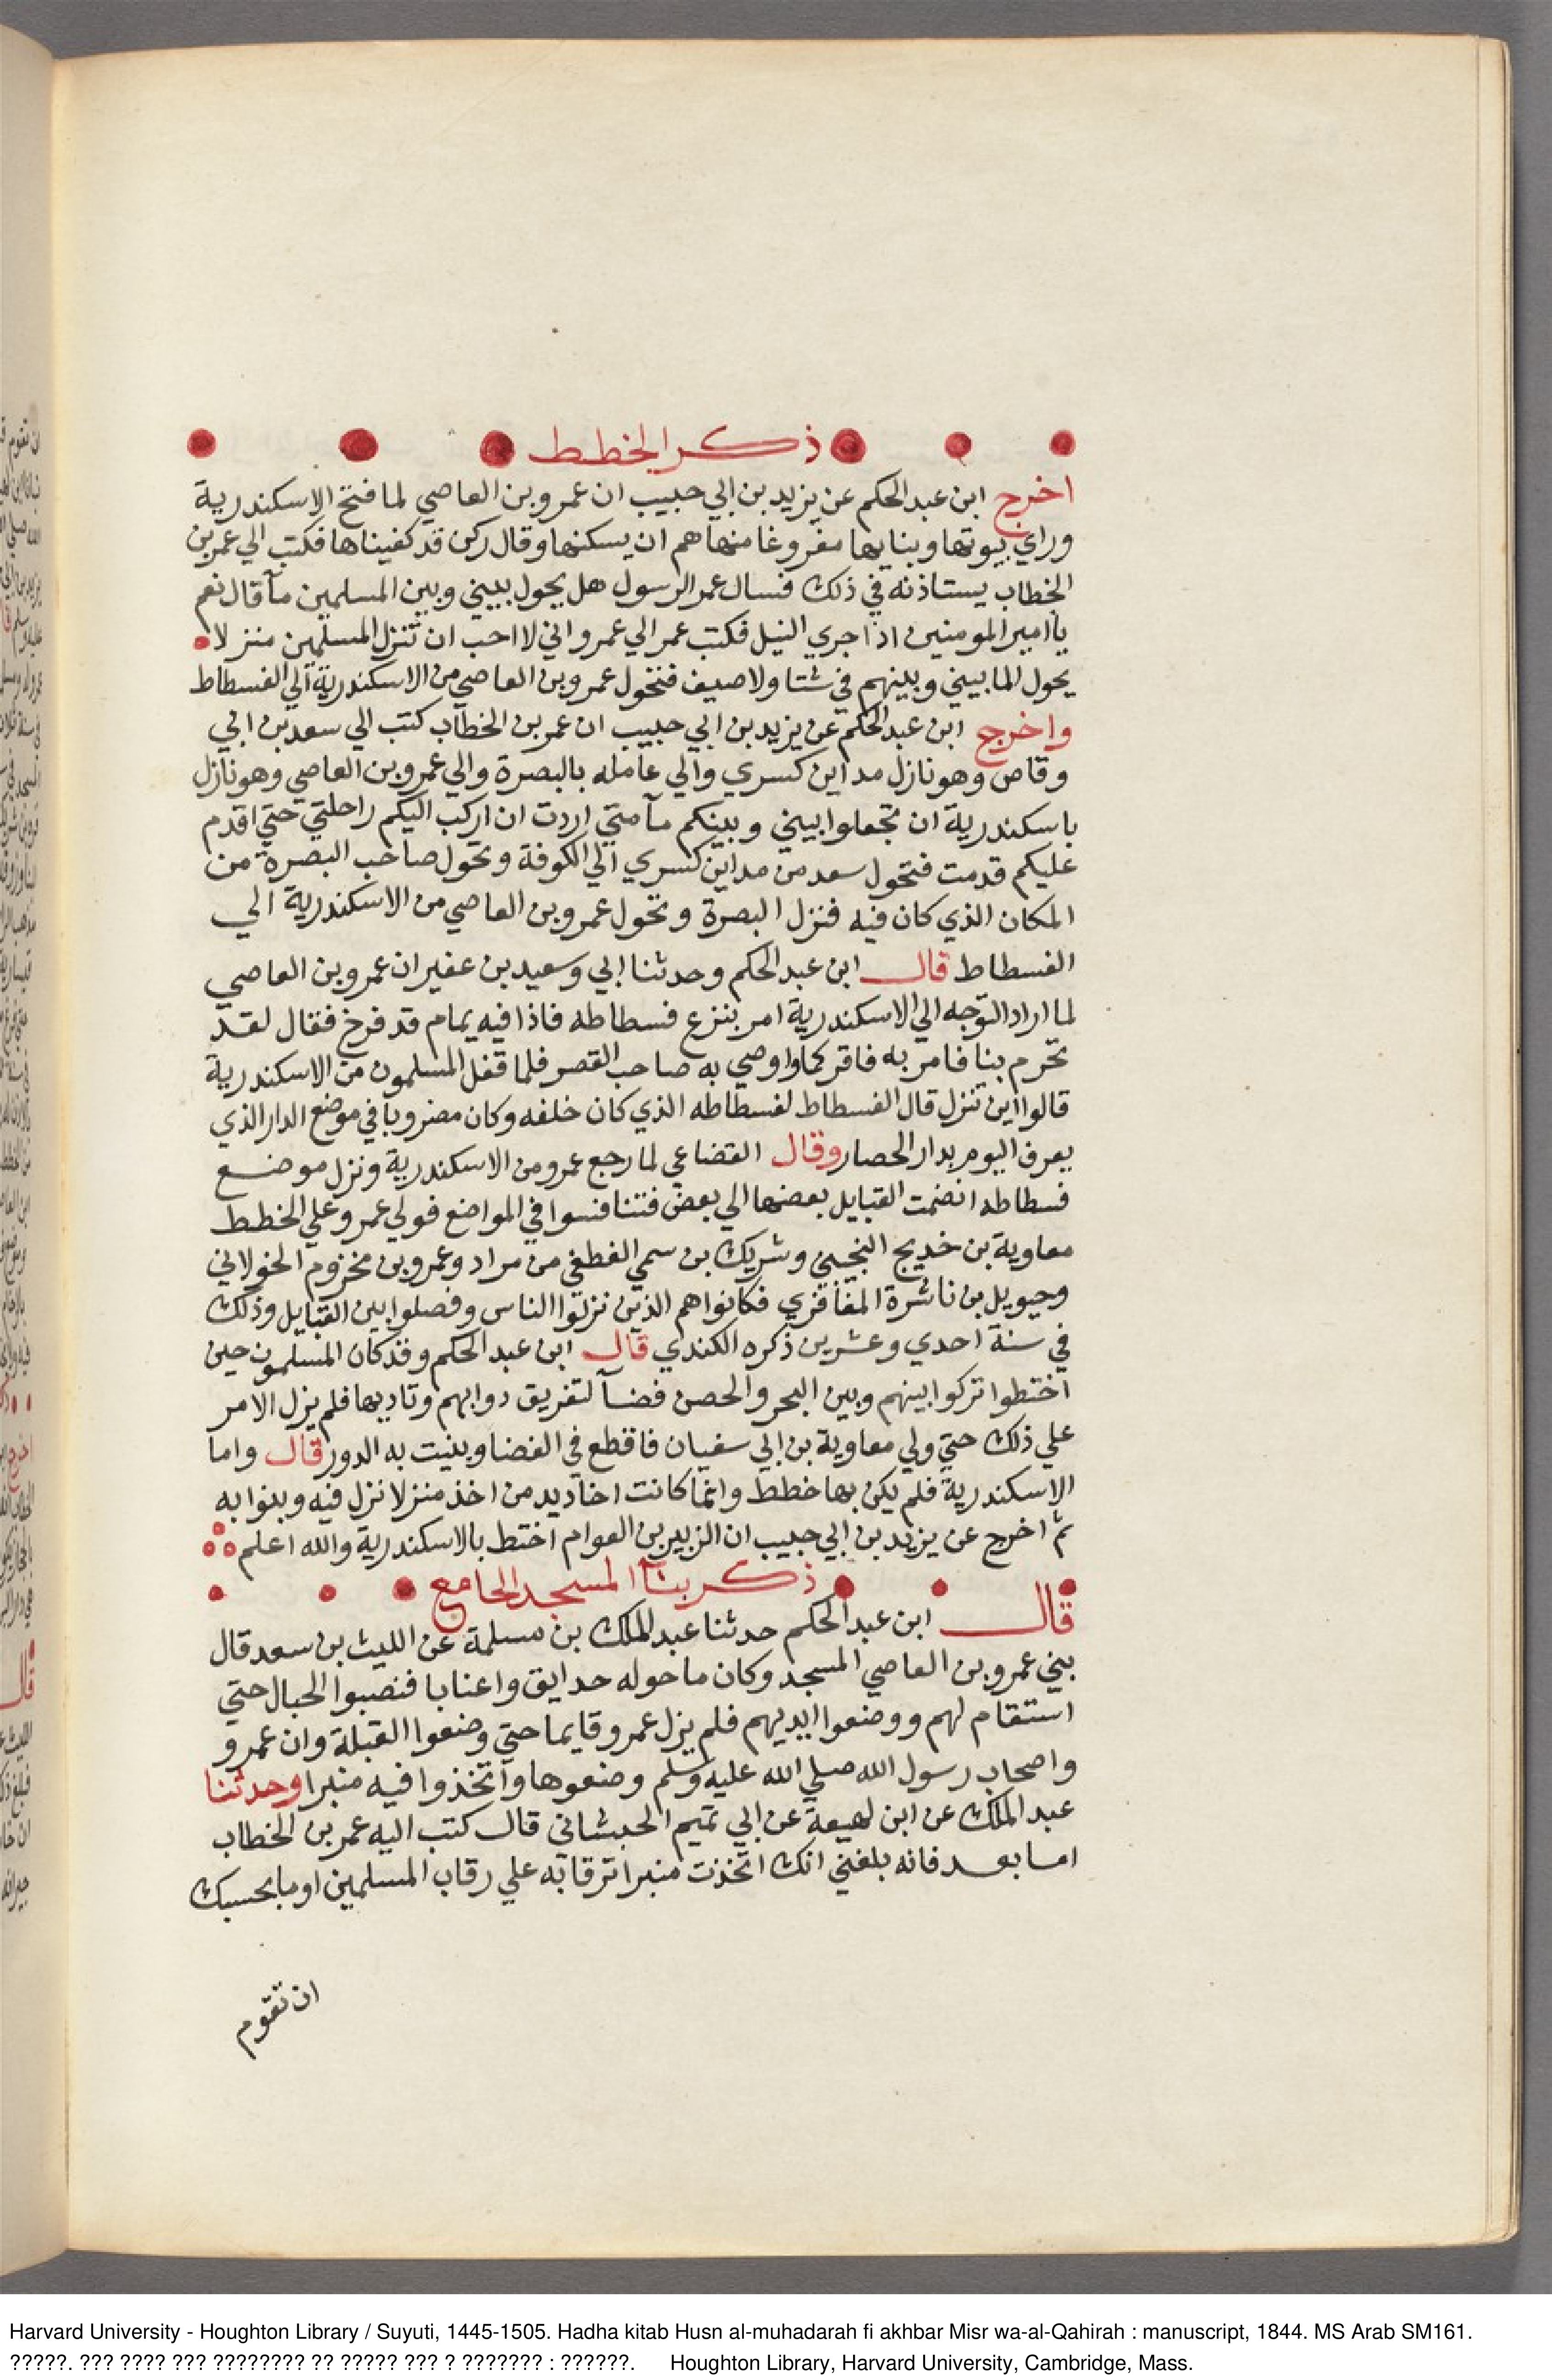 ذكر الخطط
اخرج ابن عبد الحكم عن يزيد بن ابي حبيب ان عمرو بن العاصي لما فتح الاسكندرية
وراي بيوتها وبنايها مفروغا منها هم ان يسكنها وقال ركن قد كفيناها فكتب الي عمر بن
الخطاب يستاذنه في ذلك فسال عمر الرسول هل يحول بيني وبين المسلمين مآ قال نعم
يا امير المومنين اذا جري النيل فكتب عمر الي عمرو اني لا احب ان تنزل المسلمين منزلا
يحول الما بيني وبينهم في شتا ولا صيف فتحول عمرو بن العاصي من الاسكندرية الي الفسطاط
واخرج ابن عبد الحكم عن يزيد بن ابي حبيب ان عمر بن الخطاب كتب الي سعد بن ابي
وقاص وهو نازل مداين كسري والي عامله بالبصرة والي عمرو بن العاصي وهو نازل
باسكندرية ان تجعلوا بيني وبينكم مآ متي اردت ان اركب اليكم راحلتي حتي اقدم
عليكم قدمت فتحول سعد من مداين كسري الي الكوفة وتحول صاحب البصرة من
المكان الذي كان فيه فنزل البصرة وتحول عمرو بن العاصي من الاسكندرية الي
الفسطاط قال ابن عبد الحكم وحدثنا ابي وسعيد بن عفير ان عمرو بن العاصي
لما اراد التوجه الي الاسكندرية امر بنزع فسطاطه فاذا فيه يمام قد فرخ فقال لقد
تحرم بنا فامر به فاقر كما واوصي به صاحب القصر فلما قفل المسلمون من الاسكندرية
قالوا اين ننزل قال الفسطاط لفسطاطه الذي كان خلفه وكان مضروبا في موضع الدار الذي
يعرف اليوم بدار الحصار وقال القضاعي لما رجع عمرو من الاسكندرية ونزل موضع
فسطاطه انضمت القبايل بعضها الي بعض فتنافسوا في المواضع فولي عمرو علي الخطط
معاوية بن خديج النجيبي وشريك بن سمي الغطفي من مراد وعمرو بن مخزوم الخولاني
وحيويل بن ناشرة المفافري فكانوا هم الذين نزلوا الناس وفصلوا بين القبايل وذلك
في سنة احدي وعشرين ذكره الكندي قال ابن عبد الحكم وقد كان المسلمون حين
اختطوا تركوا بينهم وبين البحر والحصن فضآ لتفريق دوابهم وتاديبها فلم يزل الامر
علي ذلك حتي ولي معاوية بن ابي سفيان فاقطع في الفضا وبنيت به الدور قال واما
الاسكندرية فلم يكن بها خطط وانما كانت اخاديد من اخذ منزلا نزل فيه وبنوا به
ثم اخرج عن يزيد بن ابي حبيب ان الزبير بن العوام اختط بالاسكندرية والله اعلم
ذكر بنآ المسجد الجامع
قال ابن عبد الحكم حدثنا عبد الملك بن مسلمة عن الليث بن سعد قال
بني عمرو بن العاصي المسجد وكان ما حوله حدايق واعنابا فنصبوا الحبال حتي
استقام لهم ووضعوا ايديهم فلم يزل عمرو قايما حتي وضعوا القبلة وان عمرو
واصحاب رسول الله صلي الله عليه وسلم وضعوها واتخذوا فيه منبرا وحدثنا
عبد الملك عن ابن لهيعة عن ابي تميم الحبشاني قال كتب اليه عمر بن الخطاب
اما بعد فانه بلغني انك اتخذت منبرا ترقا به علي رقاب المسلمين او ما يحسبك
ان تقوم
Harvard University - Houghton Library / Suyuti, 1445-1505. Hadha kitab Husn al-muhadarah fi akhbar Misr wa-al-Qahirah : manuscript, 1844. MS Arab SM161.
?????. ??? ???? ??? ???????? ?? ????? ??? ? ??????? : ??????. Houghton Library, Harvard University, Cambridge, Mass.